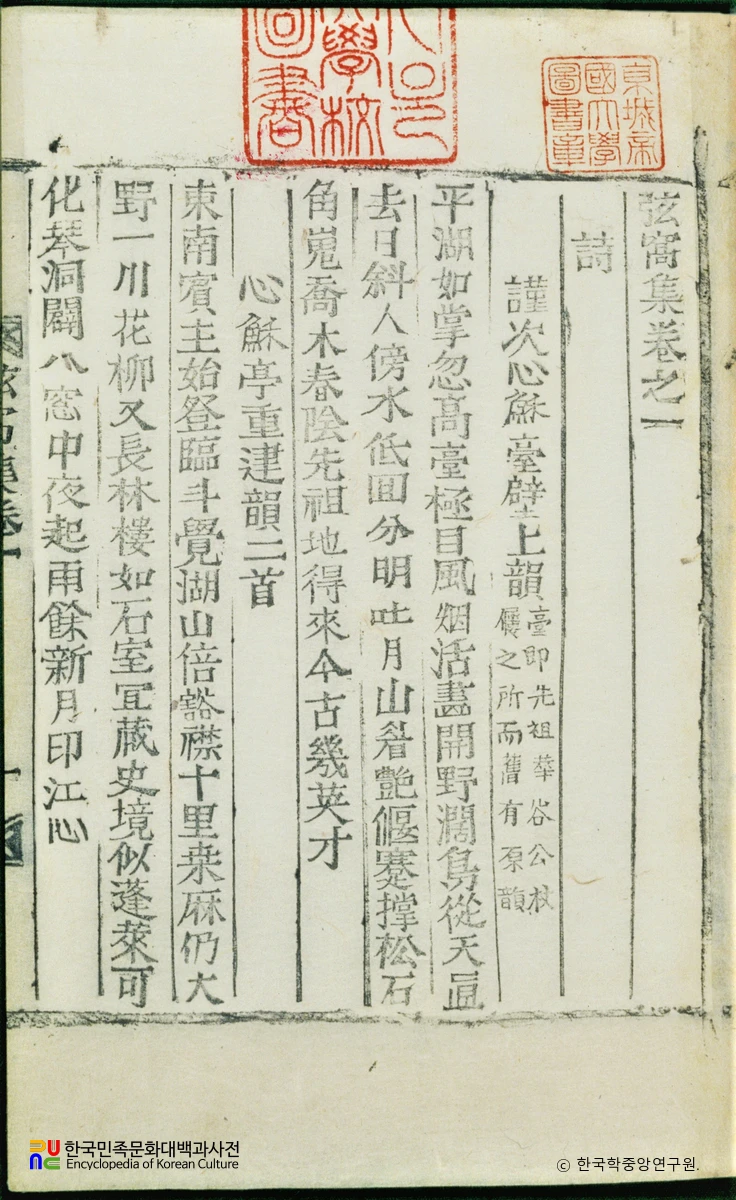 弦窩集卷之一
詩
謹次心穌臺壁上韻 臺即先祖華谷公杖
屨之所而舊有原韻
平湖如掌忽高臺極目風烟活畵開野濶鳥從天直
去日斜人傍水低回分明吐月山眉艶偃蹇撑松石
角嵬喬木春陰先祖地得來今古幾英才
心穌亭重建韻二首
東南賓主始登臨斗覺湖山倍豁襟十里桒麻仍大
野一川花柳又長林樓如石室冝藏史境似蓬萊可
化琴洞闢八窓中夜起雨餘新月印江心
京城帝
國大學
圖書章
大學校
圖書
한국민족문화대백과사전
Encyclopedia of Korean Culture
© 한국학중앙연구원.